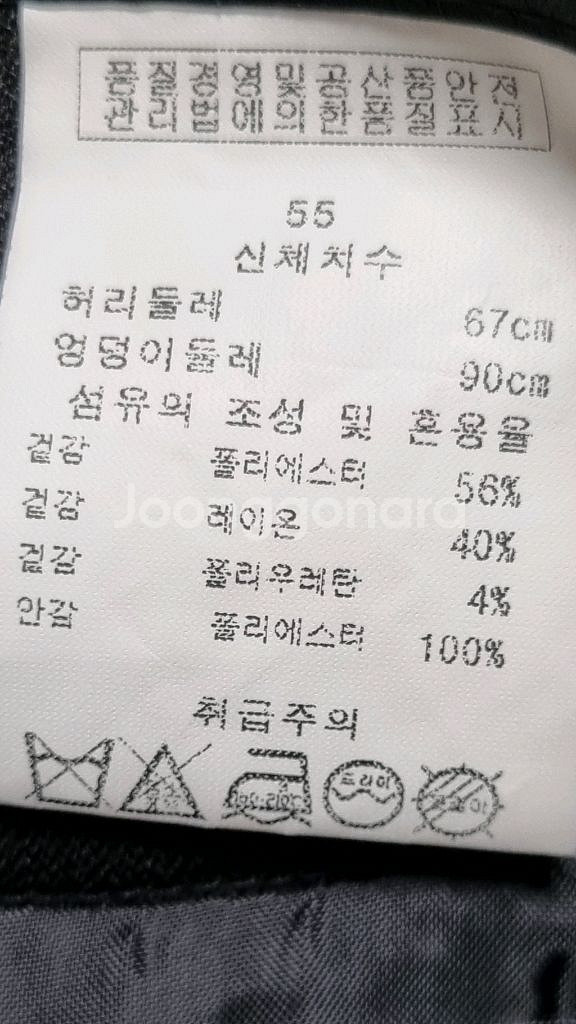 품질경영및공산품안전
관리법에의한품질표시
55
신체치수
허리둘레 67cm
엉덩이둘레 90cm
섬유의 조성 및 혼용율
겉감 폴리에스터 56%
겉감 레이온 40%
겉감 폴리우레탄 4%
안감 폴리에스터 100%
Joonggonara
취급주의
드라이